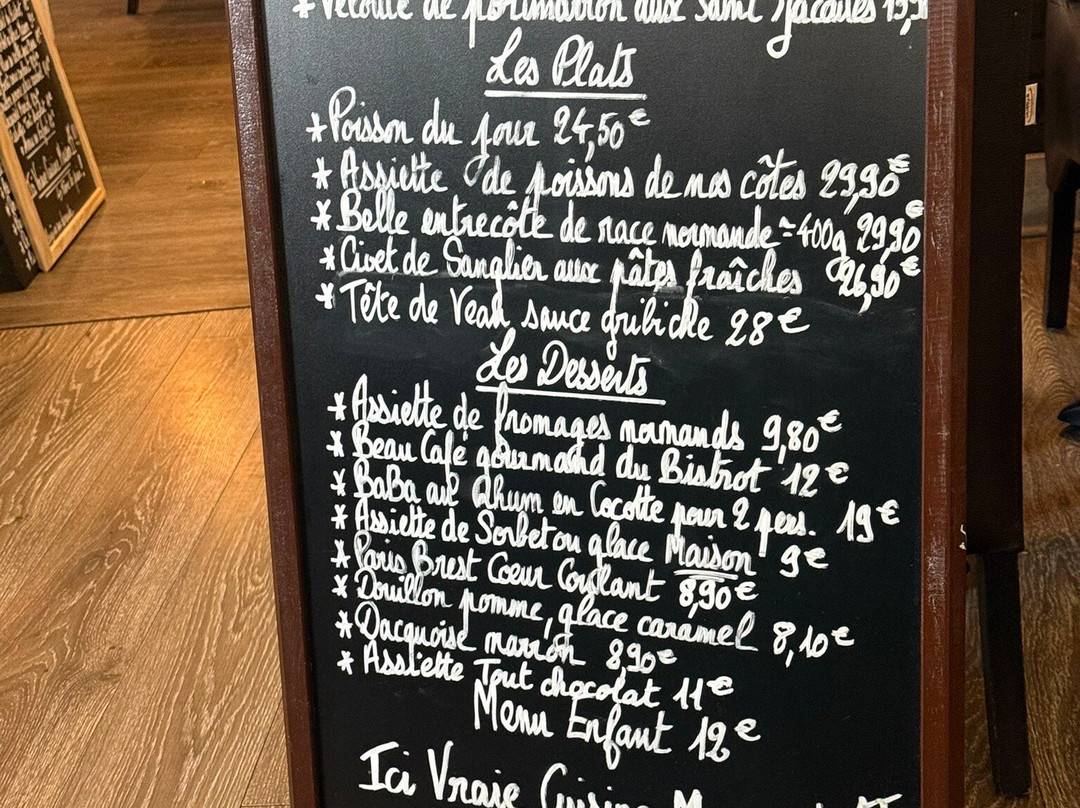 * Velouté de potimarron aux Saint Jacques
Les Plats
* Poisson du jour 24,50€
* Assiette de poissons de nos côtes 29,90€
* Belle entrecôte de race normande ≃400g 29,90€
* Civet de Sanglier aux pâtes fraîches 26,90€
* Tête de Veau sauce gribiche 28€
Les Desserts
* Assiette de fromages normands 9,80€
* Beau Café gourmand du Bistrot 12€
* BaBa au Rhum en Cocotte pour 2 pers. 19€
* Assiette de Sorbet ou glace Maison 9€
* Paris Brest Coeur Coulant 8,90€
* Douillon pomme, glace caramel 8,10€
* Dacquoise marron 8,90€
* Assiette Tout chocolat 11€
Menu Enfant 12€
Ici Vraie Cuisine